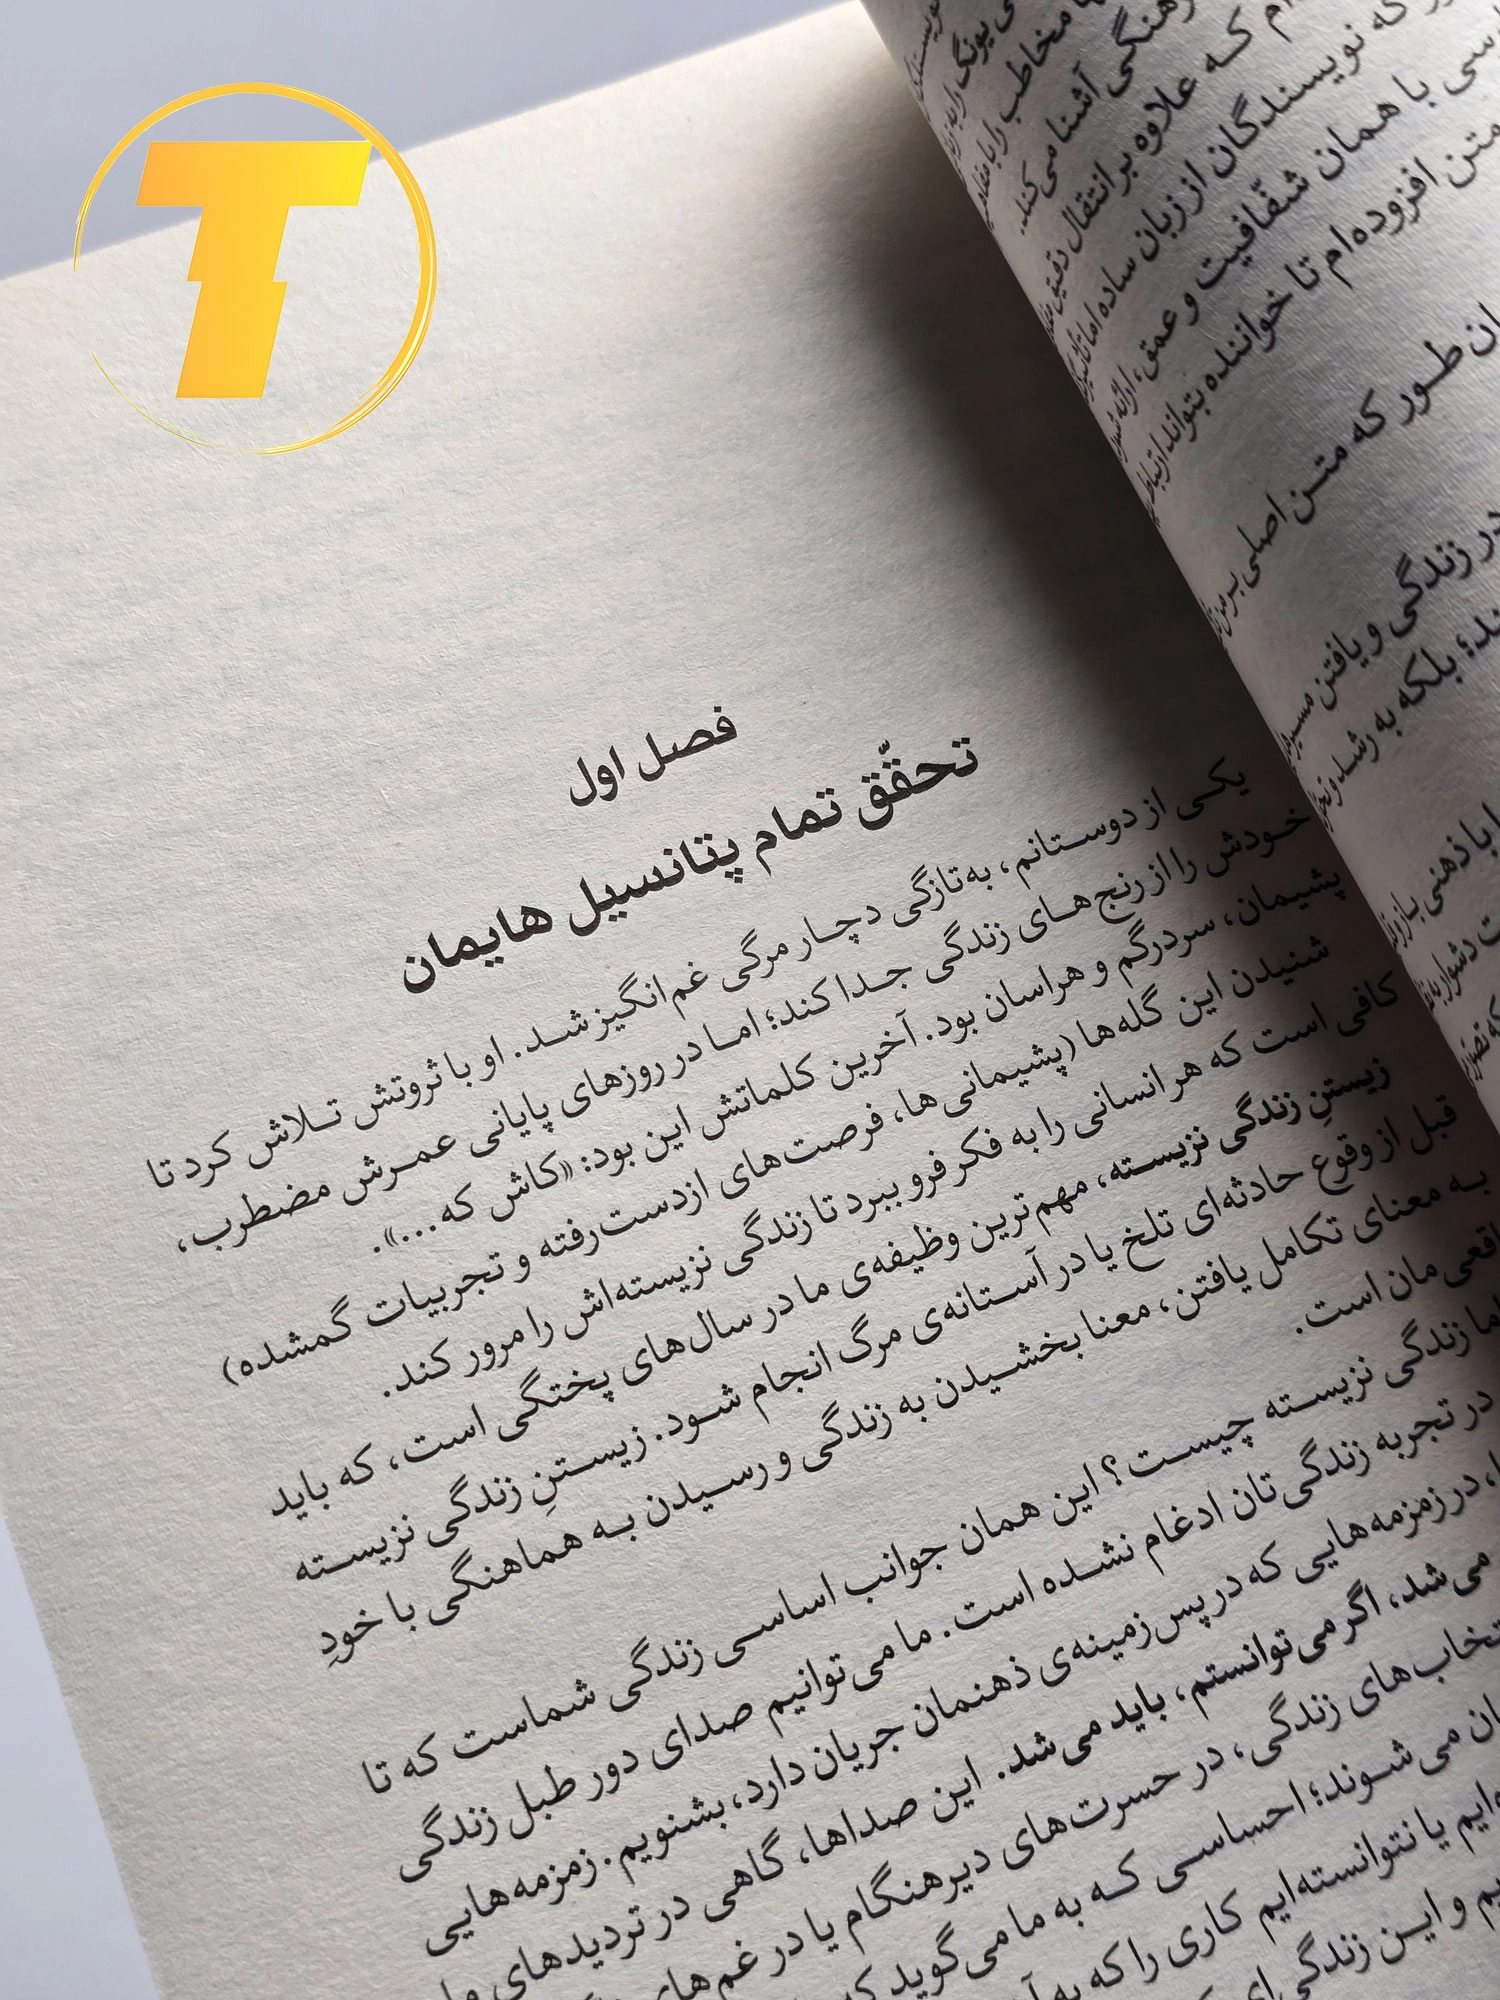 T
فصل اول
تحقّق تمام پتانسیل هایمان
یکی از دوستانم، به‌تازگی دچار مرگی غم‌انگیز شد. او با ثروتش تلاش کرد تا
خودش را از رنج‌های زندگی جدا کند؛ اما در روزهای پایانی عمرش مضطرب،
پشیمان، سردرگم و هراسان بود. آخرین کلماتش این بود: «کاش که...».
شنیدن این گله‌ها (پشیمانی‌ها، فرصت‌های ازدست‌رفته و تجربیات گمشده)
کافی است که هر انسانی را به فکر فرو ببرد تا زندگی نزیسته‌اش را مرور کند.
زیستنِ زندگی نزیسته، مهم‌ترین وظیفه‌ی ما در سال‌های پختگی است، که باید
قبل از وقوع حادثه‌ای تلخ یا در آستانه‌ی مرگ انجام شود. زیستنِ زندگی نزیسته
به معنای تکامل یافتن، معنا بخشیدن به زندگی و رسیدن به هماهنگی با خودِ
اقعی‌مان است.
ما زندگی نزیسته چیست؟ این همان جوانب اساسی زندگی شماست که تا
در تجربه زندگی‌تان ادغام نشده است. ما می‌توانیم صدای دور طبل زندگی
در زمزمه‌هایی که در پس‌زمینه‌ی ذهنمان جریان دارد، بشنویم. زمزمه‌هایی
می‌شد، اگر می‌توانستم، باید می‌شد. این صداها، گاهی در تردیدهای
تخاب‌های زندگی، در حسرت‌های دیرهنگام یا در غم‌های
ان می‌شوند؛ احساسی که به ما می‌گوید
ایم یا نتوانسته‌ایم کاری را که به
یم و این زندگی
که علاوه بر انتقال دقیق
که نویسندگان از زبان ساده اما تاثیرگذار
با همان شفّافیت و عمق، ارائه شود
متن افزوده‌ام تا خواننده بتواند ارتباط
ان طور که متن اصلی بر
در زندگی و یافتن مسیر
ند؛ بلکه به رشد و
با ذهنی باز و